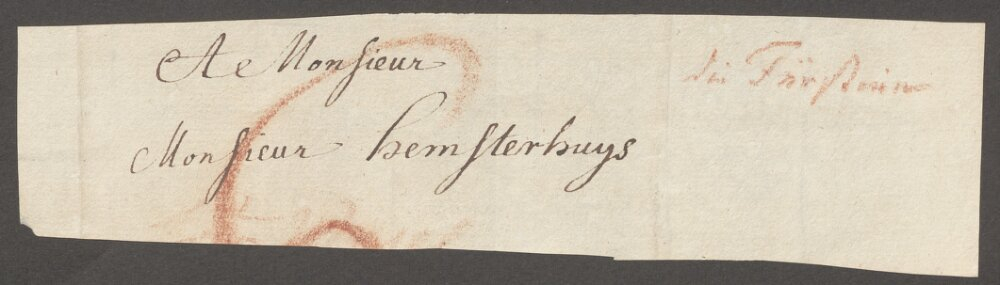 A Monsieur
Monsieur hemsterhuys
die Fürstinn